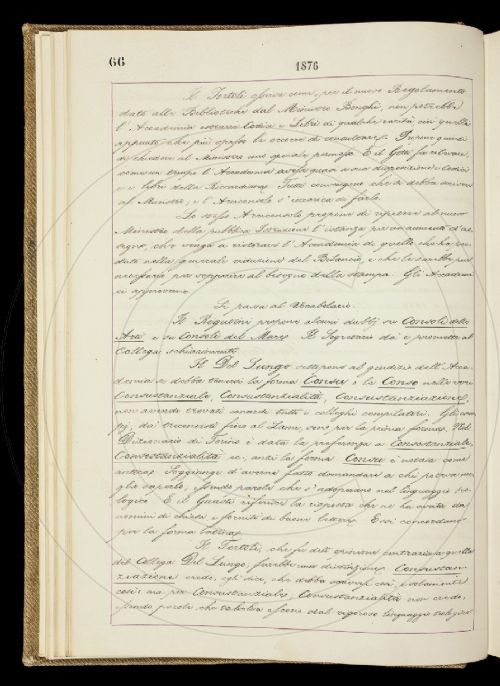 66
1876
Il Tortoli osserva come, per il nuovo Regolamento
dato alle Biblioteche dal Ministro Bonghi, non potrebbe
l'Accademia Codici e Libri di qualche rarità, cui quelli
appunto che più spesso le occorre di consultare. Propone quindi
di chiedere al Ministro uno speciale permesso. E il Gotti fa rilevare,
come un tempo l'Accademia avesse quasi a sua disposizione i Codici
e i libri della Riccardiana. Tutti convengono che si debba scrivere
al Ministro; e l'Arciconsolo s'incarica di farlo.
Lo stesso Arciconsolo propone di ripetere al nuovo
Ministro della pubblica Istruzione l'istanza per un aumento d'as-
segno, che venga a ristorare l'Accademia di quello che ha per-
duto nella generale riduzione del Bilancio, e che le sarebbe pur
necessario per sopperire al bisogno della stampa. Gli Accademi
ci approvano.
Si passa al Vocabolario.
Il Rigutini propone alcuni dubbj su Consoli delle
Arti e su Consoli del Mare. Il Segretario dà e promette al
Collega schiarimenti.
Il Del Lungo sottopone al giudizio dell'Acca-
demia se debba tenersi la forma Consu o la Conso nelle voci
Consustanziale, Consustanzialità, Consustanziazione,
non avendo trovati concordi tutti i colleghi compilatori. Gli esem
pj, dai trecentisti fino al Lami, sono per la prima forma. Nel
Dizionario di Torino è data la preferenza a Consostanziale,
Consostanzialità ec. anzi la forma Consu è notata come
antica. Soggiunge d'averne fatta domandare a chi poteva me
glio saperlo, essendo parole che s'adoperano nel linguaggio teo-
logico. E il Guasti riferisce la risposta che ne ha avuta da
uomini di chiesa e forniti di buone lettere. Essi concordano
per la forma latina.
Il Tortoli, che fu detto essere contrario a quella
del Collega Del Lungo, farebbe una distinzione. Consustan-
ziazione crede, egli dice, che debba aversi così, e solamente
così: ma per Consustanziale, Consustanzialità non crede,
essendo parole che talvolta escono dal rigoroso linguaggio teologico